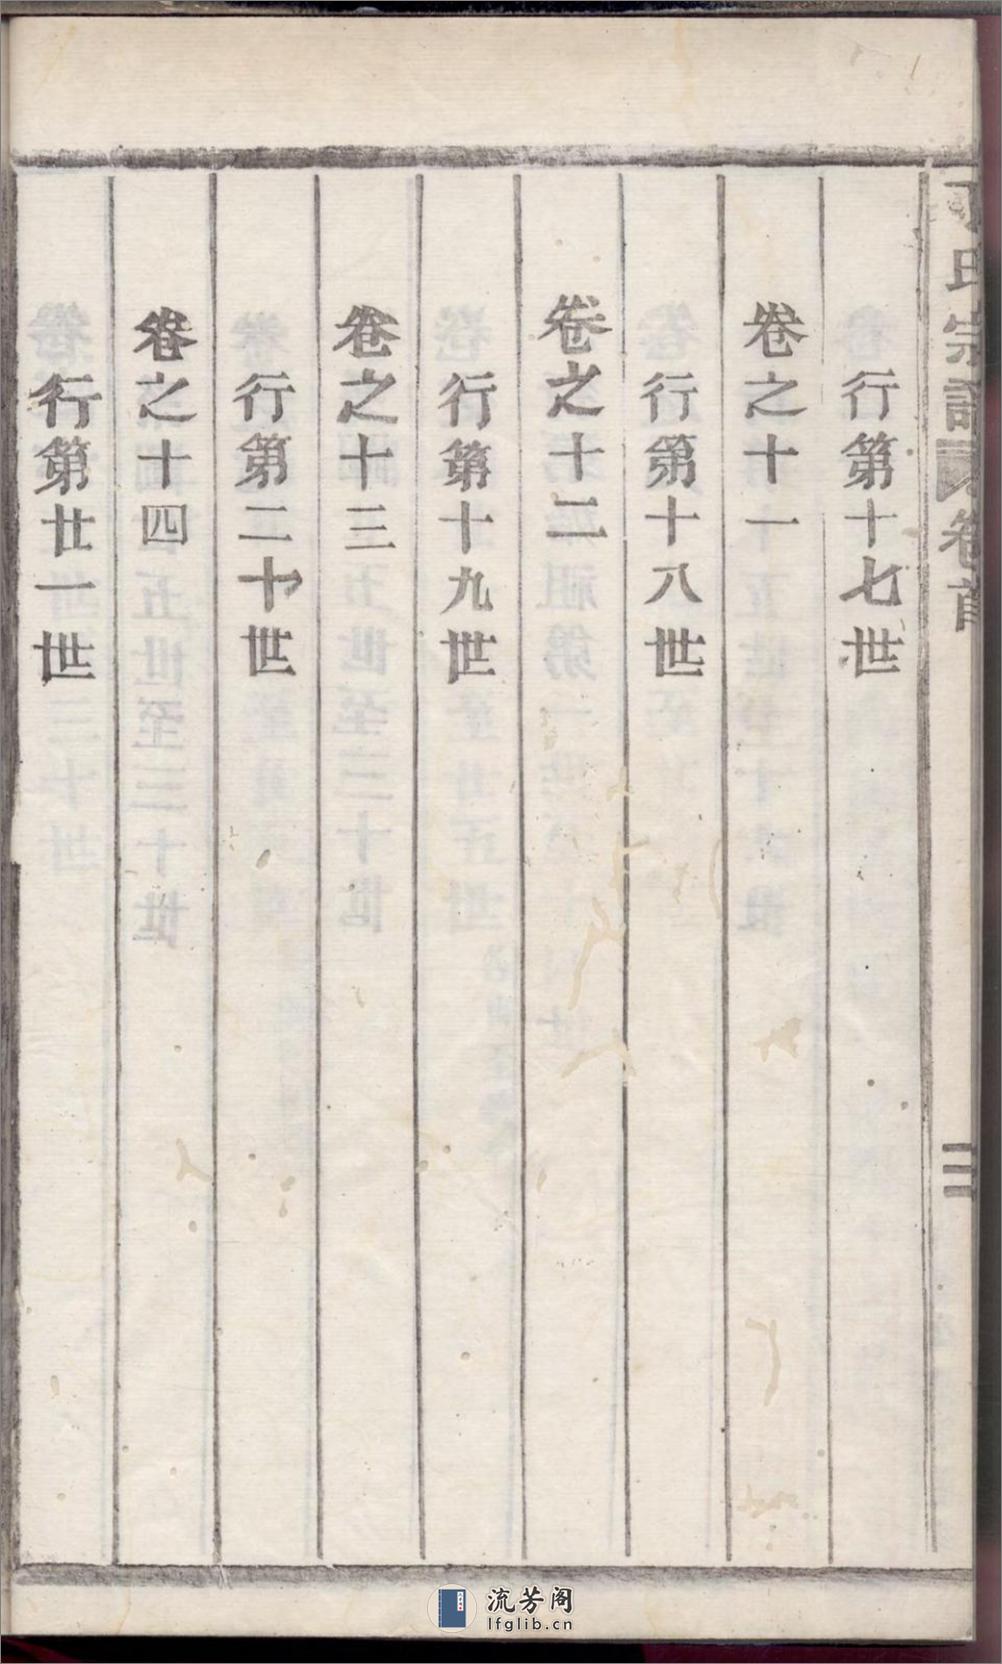 丁氏宗譜 卷首 二
行第十七世
卷之十一
行第十八世
卷之十二
行第十九世
卷之十三
行第二十世
卷之十四
行第廿一世
流芳阁
lfglib.cn